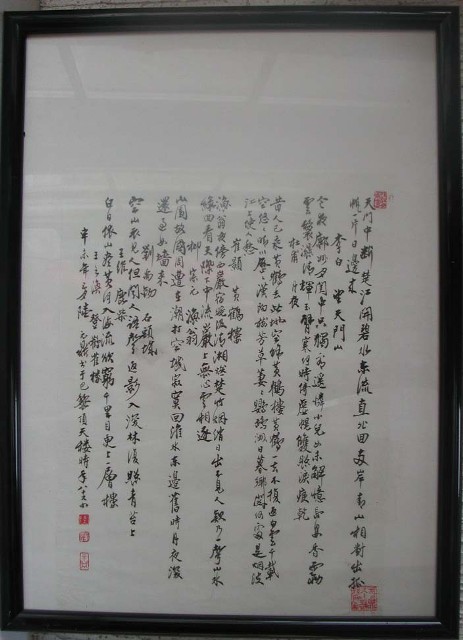 天門中断楚江開碧水東流直北回两岸青山相對出孤
帆一片日邊来
李白 望天門山
今夜鄜州月閨中只獨看遥憐小兒女未解憶長安香霧
雲鬟濕清輝玉臂寒何時倚虚幌雙照淚痕乾
杜甫 月夜
昔人已乘黄鶴去此地空餘黄鶴樓黄鶴一去不復返白雲千載
空悠悠晴川歷歷漢陽樹芳草萋萋鸚鵡洲日暮鄉關何處是烟波
江上使人愁
崔顥 黄鶴樓
漁翁夜傍西巖宿曉汲清湘燃楚竹烟消日出不見人欸乃一聲山水
緑回看天際下中流巖上無心雲相逐
柳宗元 漁翁
山圍故國周遭在潮打空城寂寞回淮水東邊舊時月夜深
還過女墙来
劉禹錫 石頭城
空山不見人但聞人語聲返影入深林復照青苔上
王維 鹿柴
白日依山盡黄河入海流欲窮千里目更上一層樓
王之涣 登鸛雀樓
辛未年